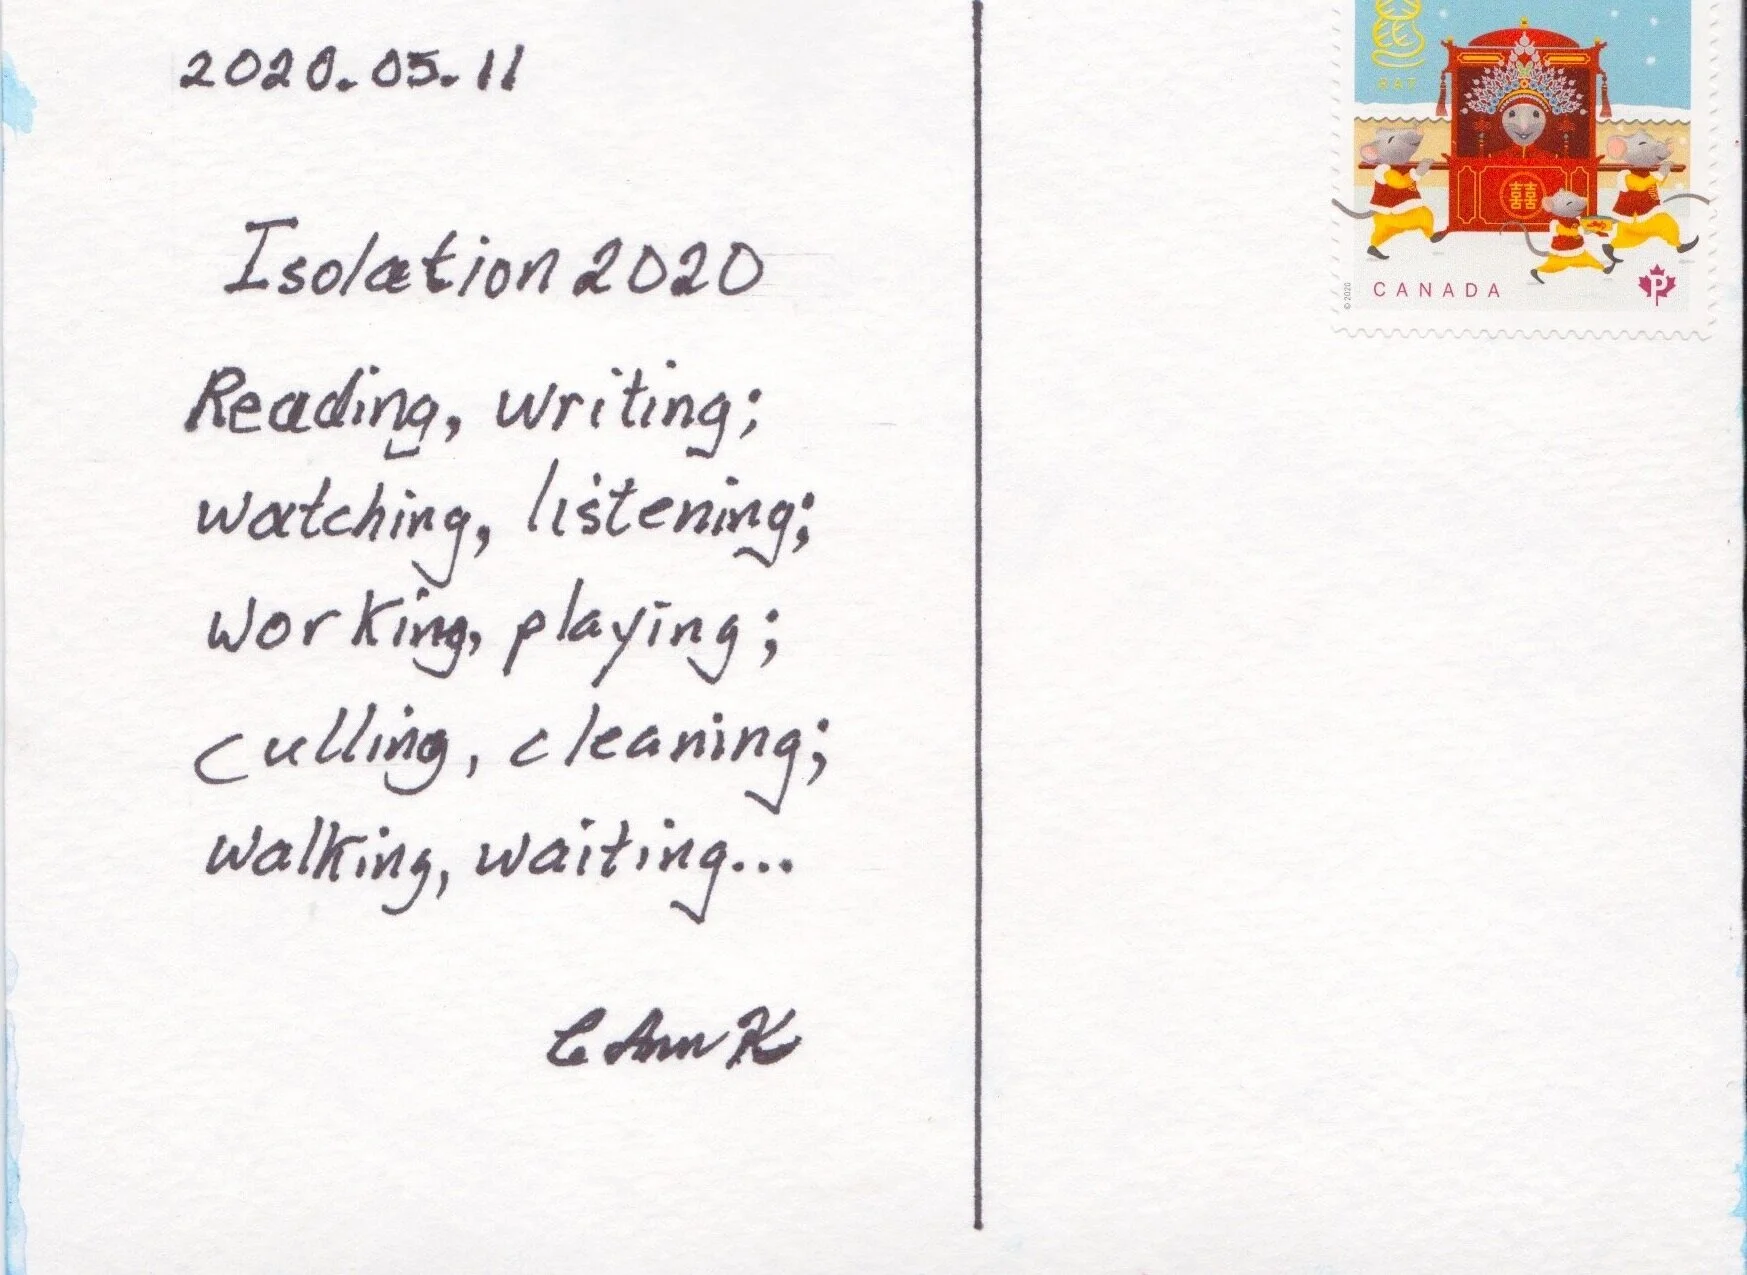 2020.05.11
Isolation 2020
Reading, writing;
watching, listening;
working, playing;
culling, cleaning;
walking, waiting...
C Ann K
RAT
囍
© 2020
CANADA
P